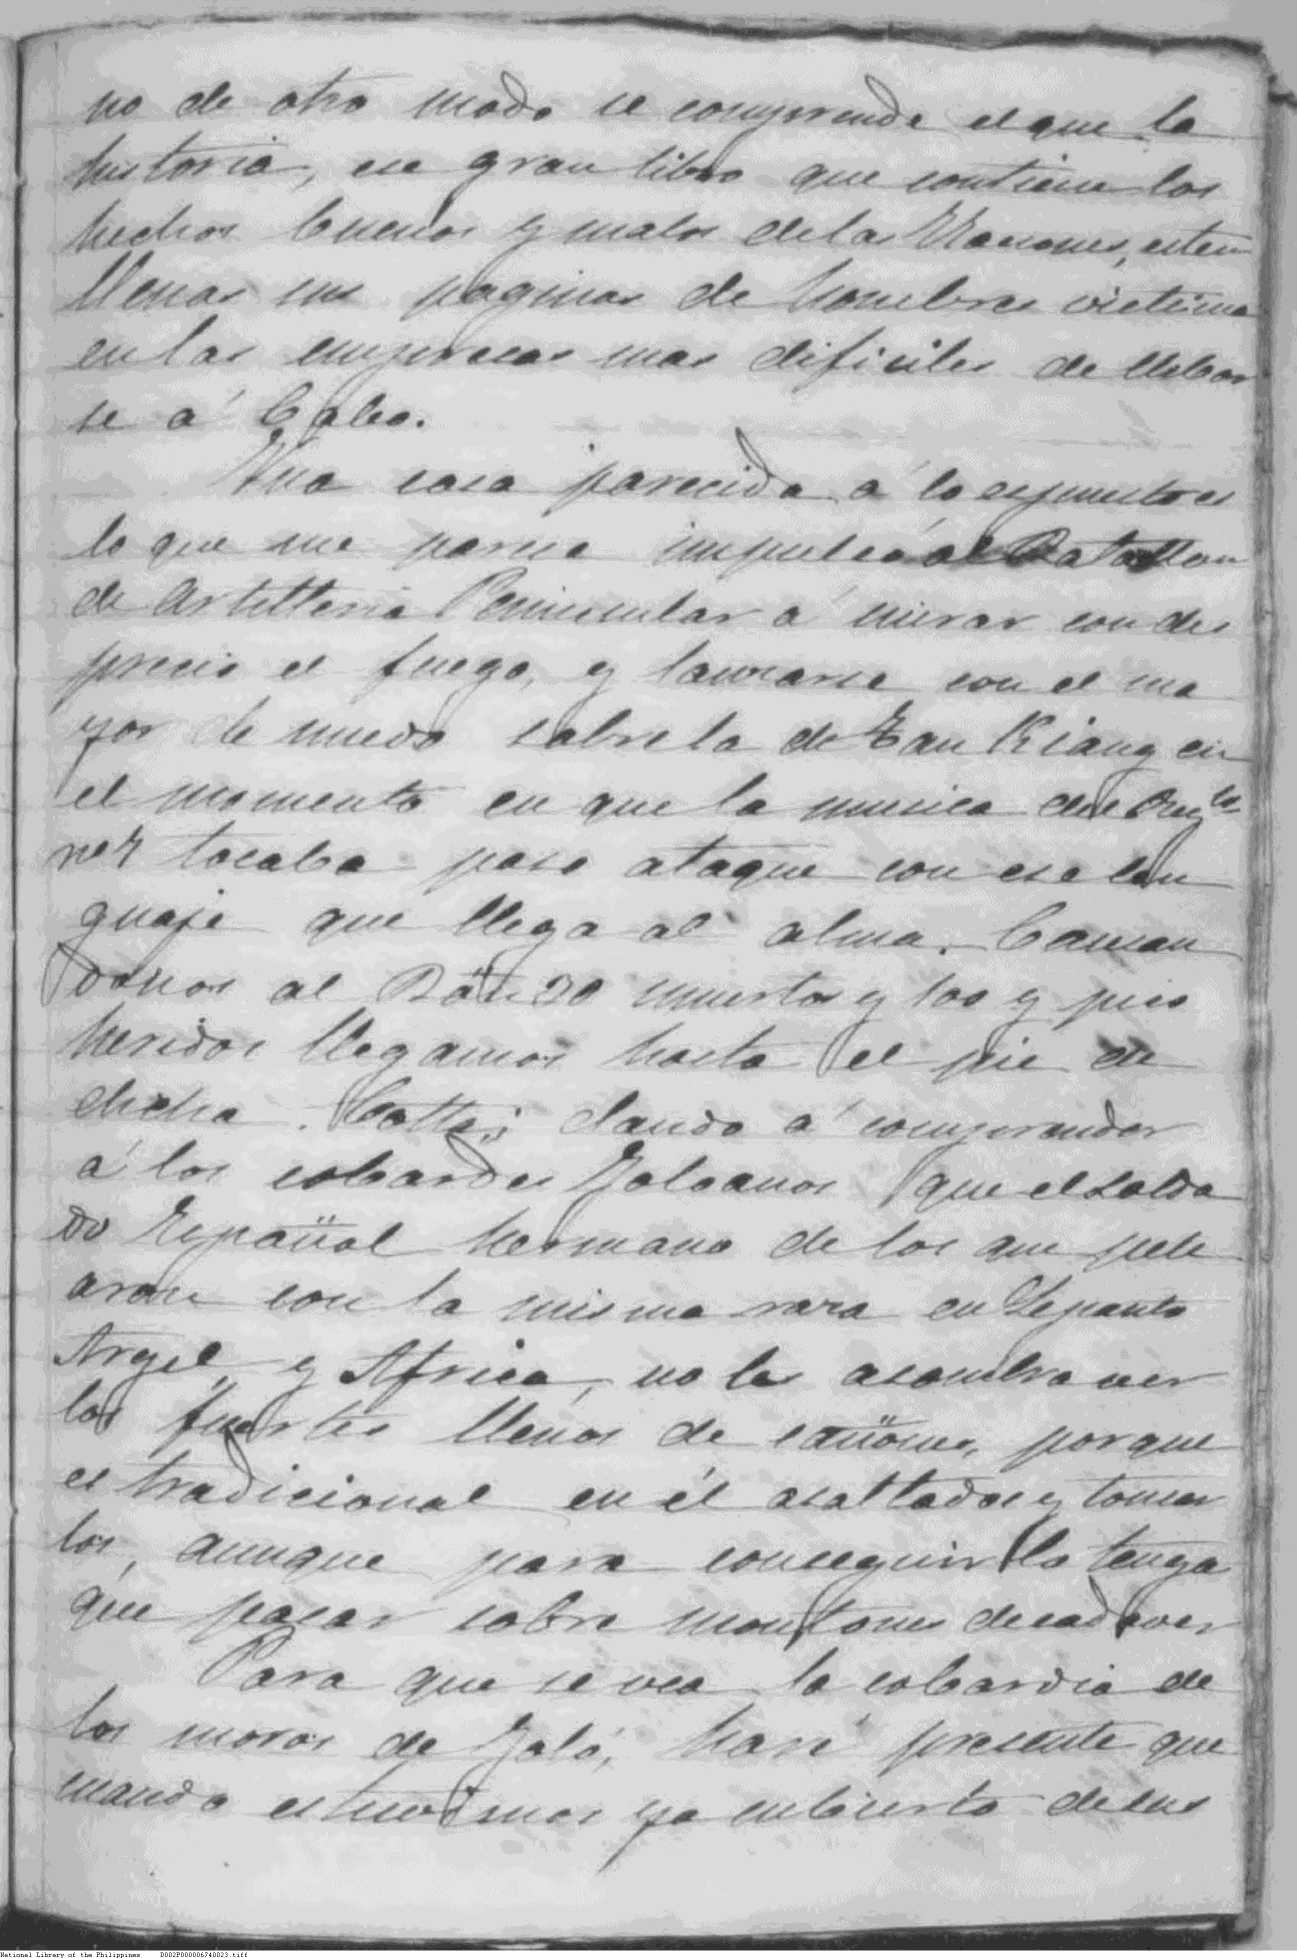 no de otro modo se comprende el que la
historia, ese gran libro que contiene los
hechos buenos y malos de las Naciones, esten
llenas sus paginas de hombres victima
en las empresas mas dificiles de llebar
se á Cabo.
Una cosa parecida á lo espuesto es
lo que me parece impulsó al Batallon
de Artilleria Peninsular á mirar con des
precio el fuego, y lanzarse con el ma
yor de nuedo sobre la de Dan Kiang en
el momento en que la musica del Reg.to
nº 7 tocaba paso ataque con ese len
guaje que llega al alma. Causan
donos al 20 muertos y 100 y pico
heridos llegamos hasta el pie de
dicha Cotta; dando á comprender
á los cobardes Joloanos que el solda
do Español hermano de los que pele
aron con la misma raza en Lepanto
Argel y Africa, no les asombra ver
los fuertes llenos de cañones, porque
es tradicional en él asaltados y tomar
los, aunque para conseguirlo tenga
que pasar sobre montones de cadaver
Para que se vea la cobardia de
los moros de Joló, haré presente que
cuando estuvimos ya cubierto de sus
National Library of the Philippines D002P000006740023.tiff